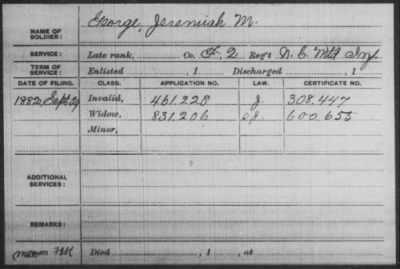 George, Jeremiah M.
NAME OF SOLDIER:
SERVICE: Late rank, Co. F. 2 Reg't N. C. Mtd Inf.
TERM OF SERVICE: Enlisted , 1 Discharged , 1
DATE OF FILING. CLASS. APPLICATION NO. LAW. CERTIFICATE NO.
1882, Sept. Invalid, 461.228 J. 308.447
Widow, 831.206 600.655
Minor,
ADDITIONAL SERVICES:
REMARKS:
Died , 1 , at